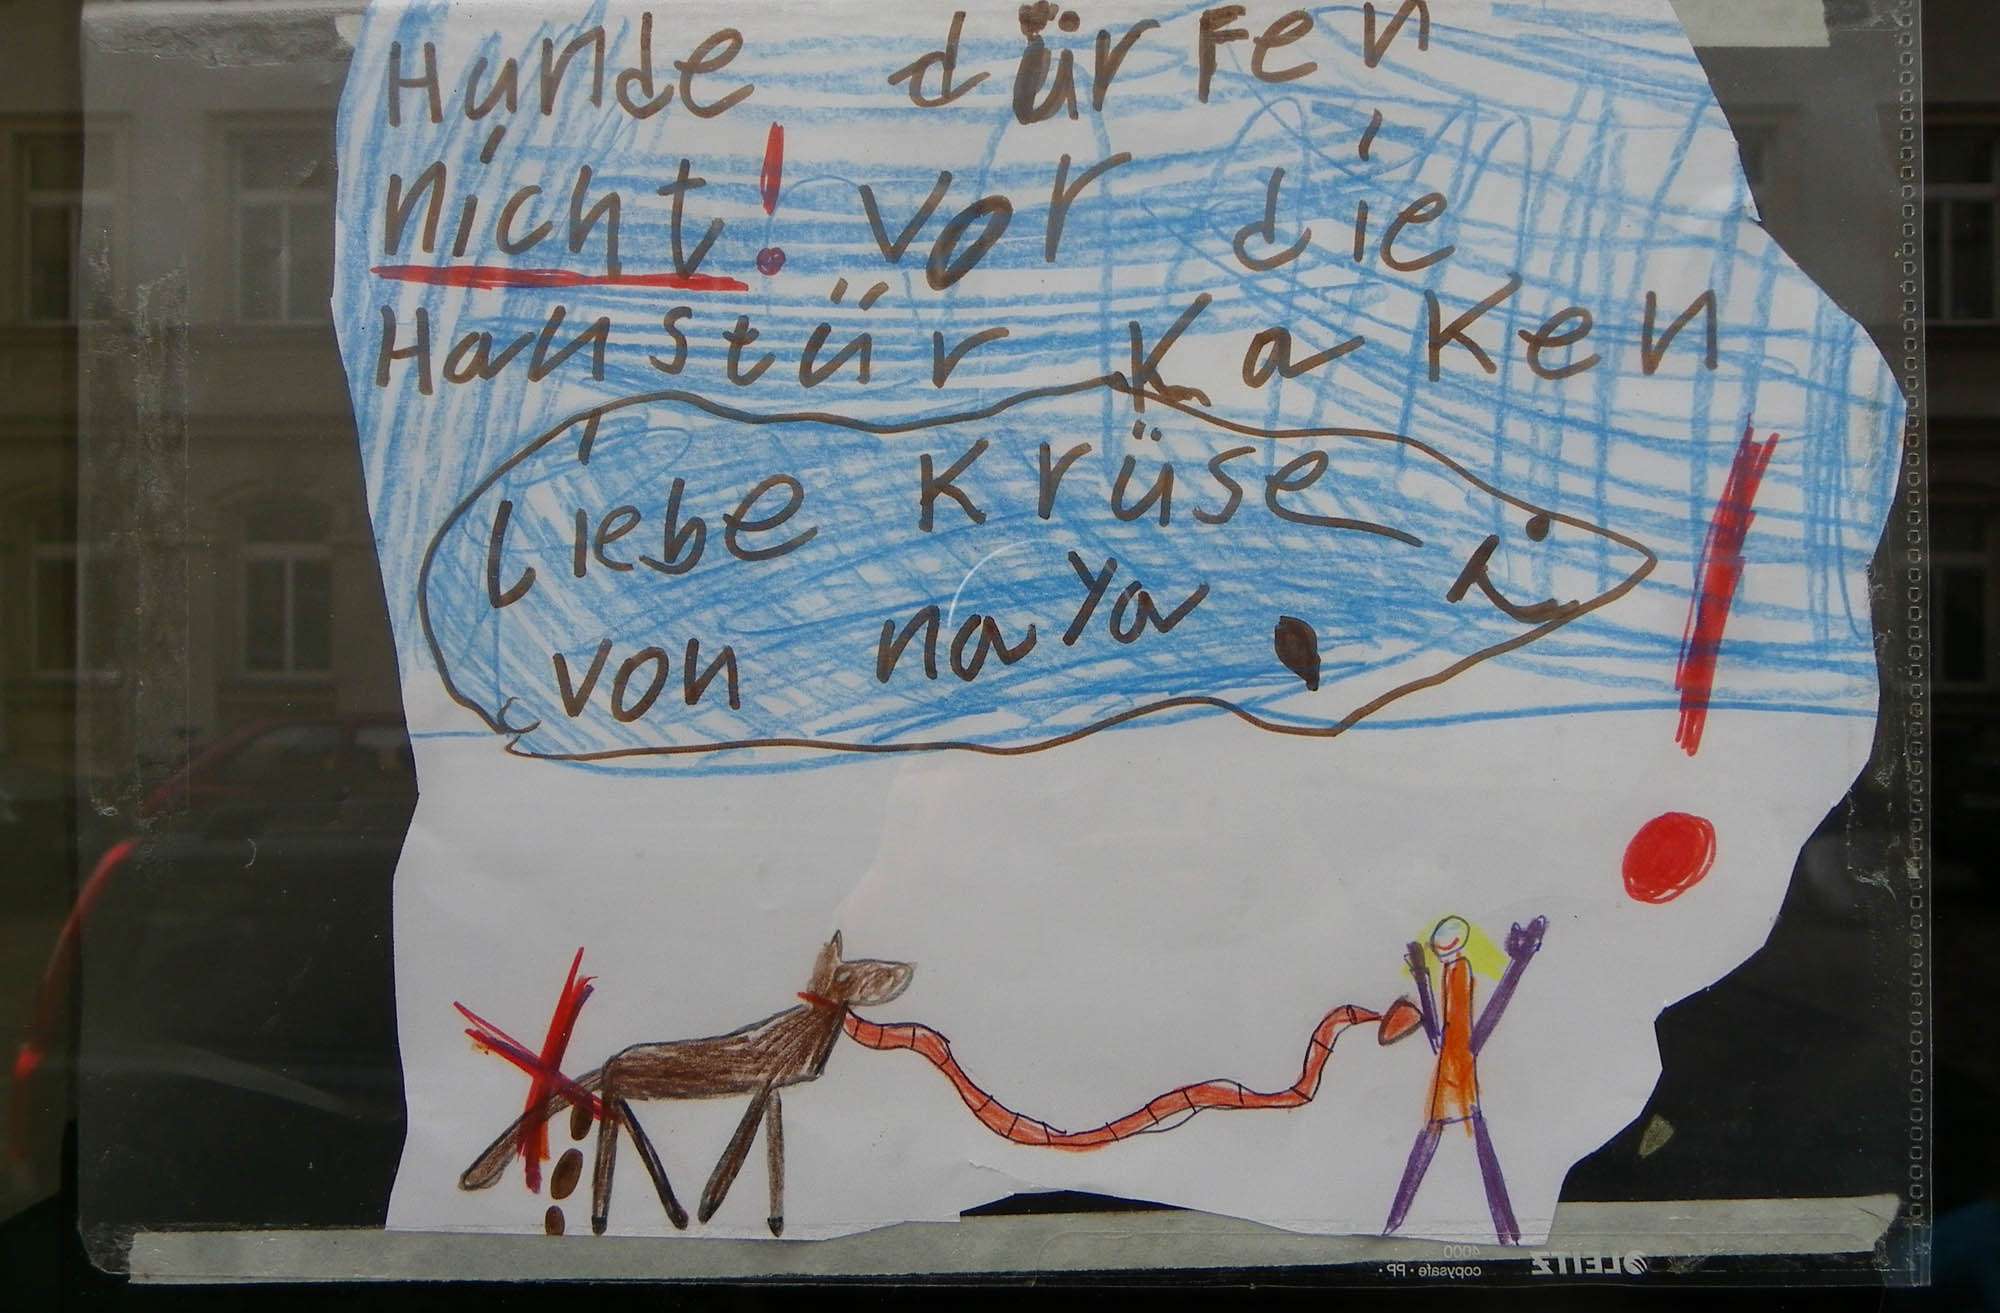 Hunde dürfen
nicht! vor die
Haustür kaken
Liebe Krüse
von naya
LEITZ
4000
copysafe · PP ·